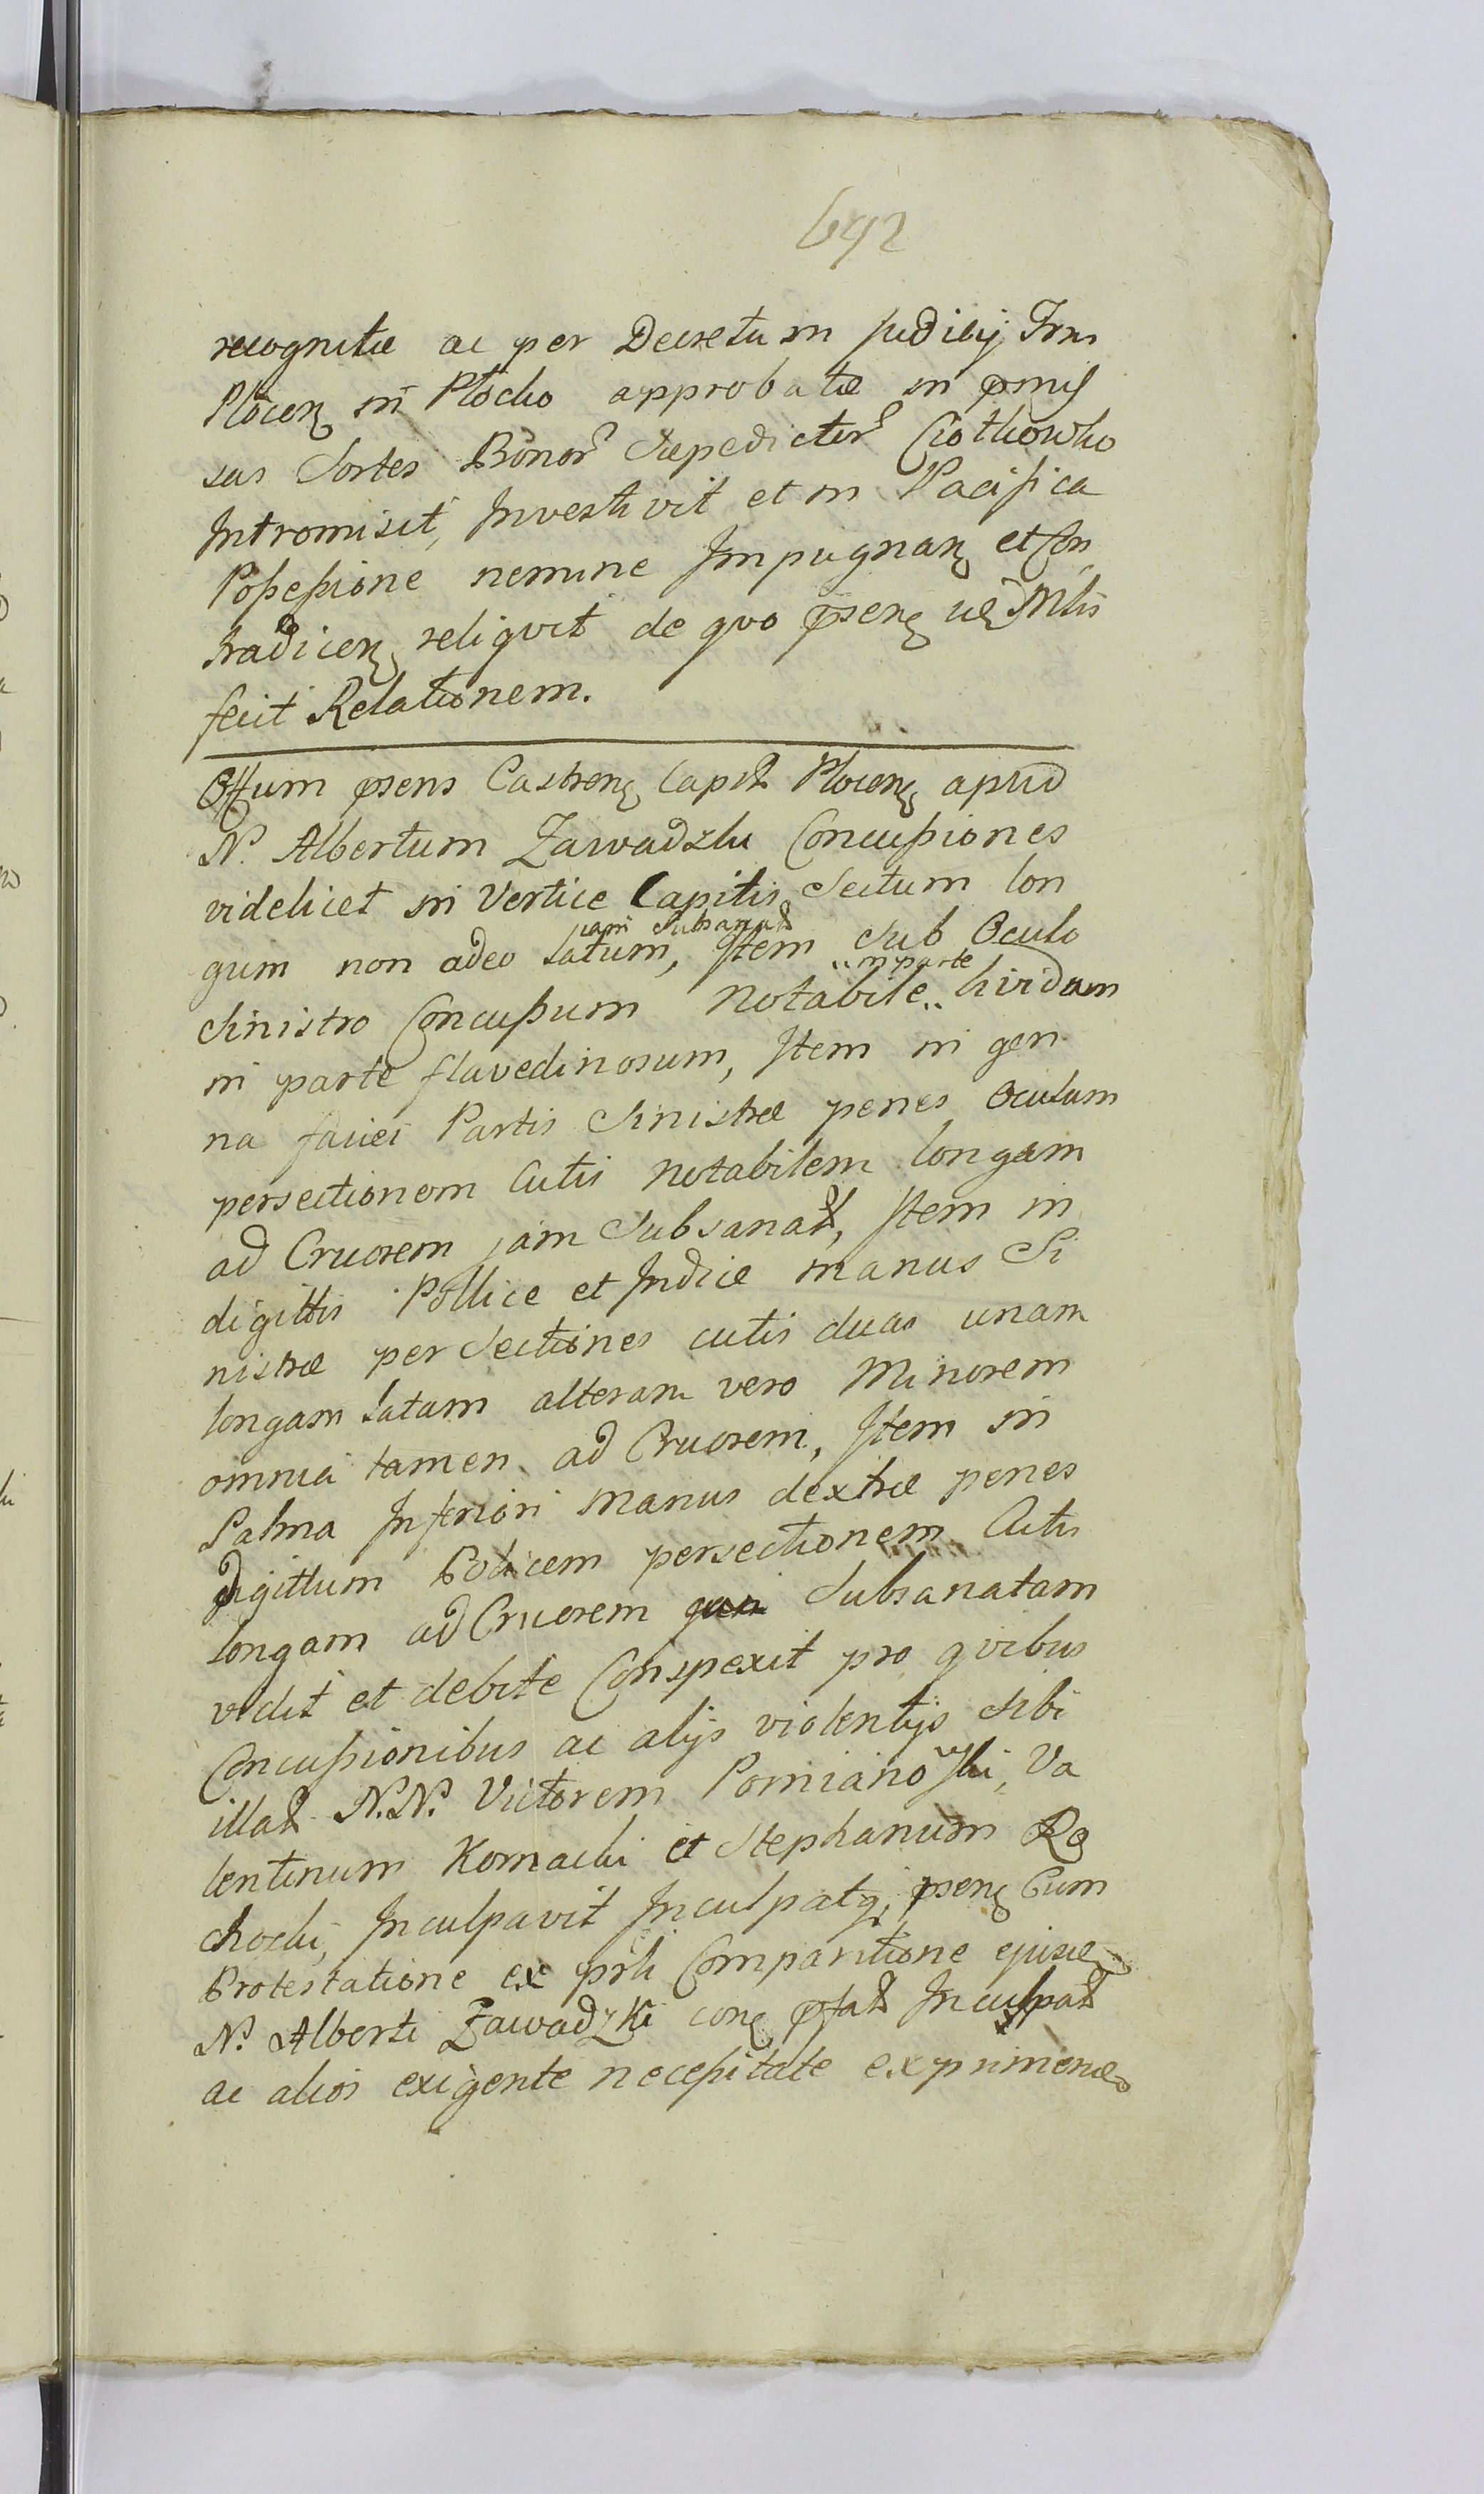 692
recognitæ ac per Decretum Judicij Trns
Plocen in Plocko approbatæ in pmis
sas Sortes Bonor Sæpedictor Ciotkowko
Intromisit, Investivit et in Pacifica
Possessione nemine Impugnan et Con
tradicen reliqvit de qvo psens Mlis
fecit Relationem.
Offum psens Castren Capit Plocen apud
N. Albertum Zawadzki Concussiones
videlicet in Vertice Capitis Sectum lon
jam Subsanat
gum non adeo latum, Item Sub Oculo
in parte
Sinistro Concussum Notabile lividum
in parte flavedinosum, Item in gen
na faciei Partis Sinistræ penes Oculum
persectionem Cutis notabilem longam
ad Cruorem jam Subsanat, Item in
digittis Pollice et Indice manus Si
nistræ per Sectiones cutis duas unam
longam latam alteram vero Minorem
omnia tamen ad Cruorem, Item in
Palma Inferiori manus dextræ penes
digittum Policem persectionem Cutis
longam ad Cruorem Subsanatam
vidit et debite Conspexit pro qvibus
Concussionibus ac alijs violentijs Sibi
illat N.N. Victorem Pomianowski, Va
lentinum Komacki et Stephanum Ra
chocki, Inculpavit Inculpatq, psens Cum
Protestatione ex psli Comparitione ejusd
N. Alberti Zawadzki con pfat Inculpat
ac alios exigente necessitate exprimend